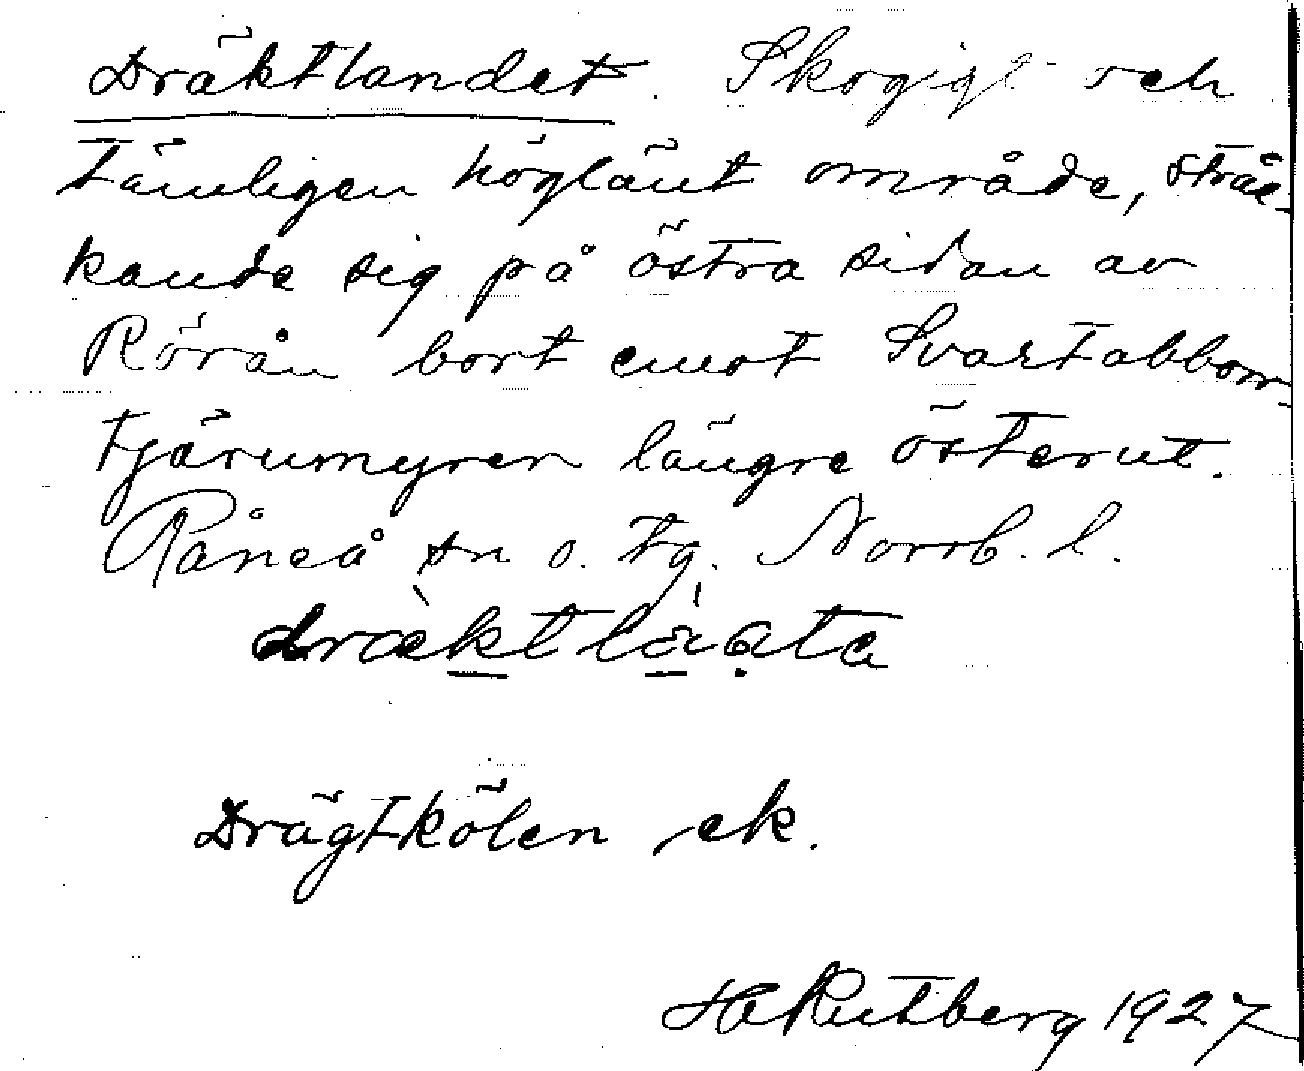 Dräktlandet. Skogigt och
tämligen höglänt område, sträc-
kande sig på östra sidan av
Rörån bort emot Svartabborr-
tjärnmyren längre österut.
Råneå sn o. tg. Norrb. l.
Drägtkölen ek.
HARutberg 1927